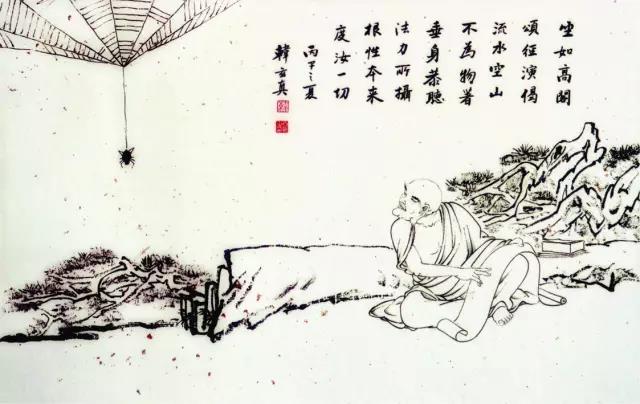 坐如高閣
頌徑演偈
流水空山
不為物著
垂身恭聽
法力所攝
根性本來
度汝一切
丙子之夏
韓玄真